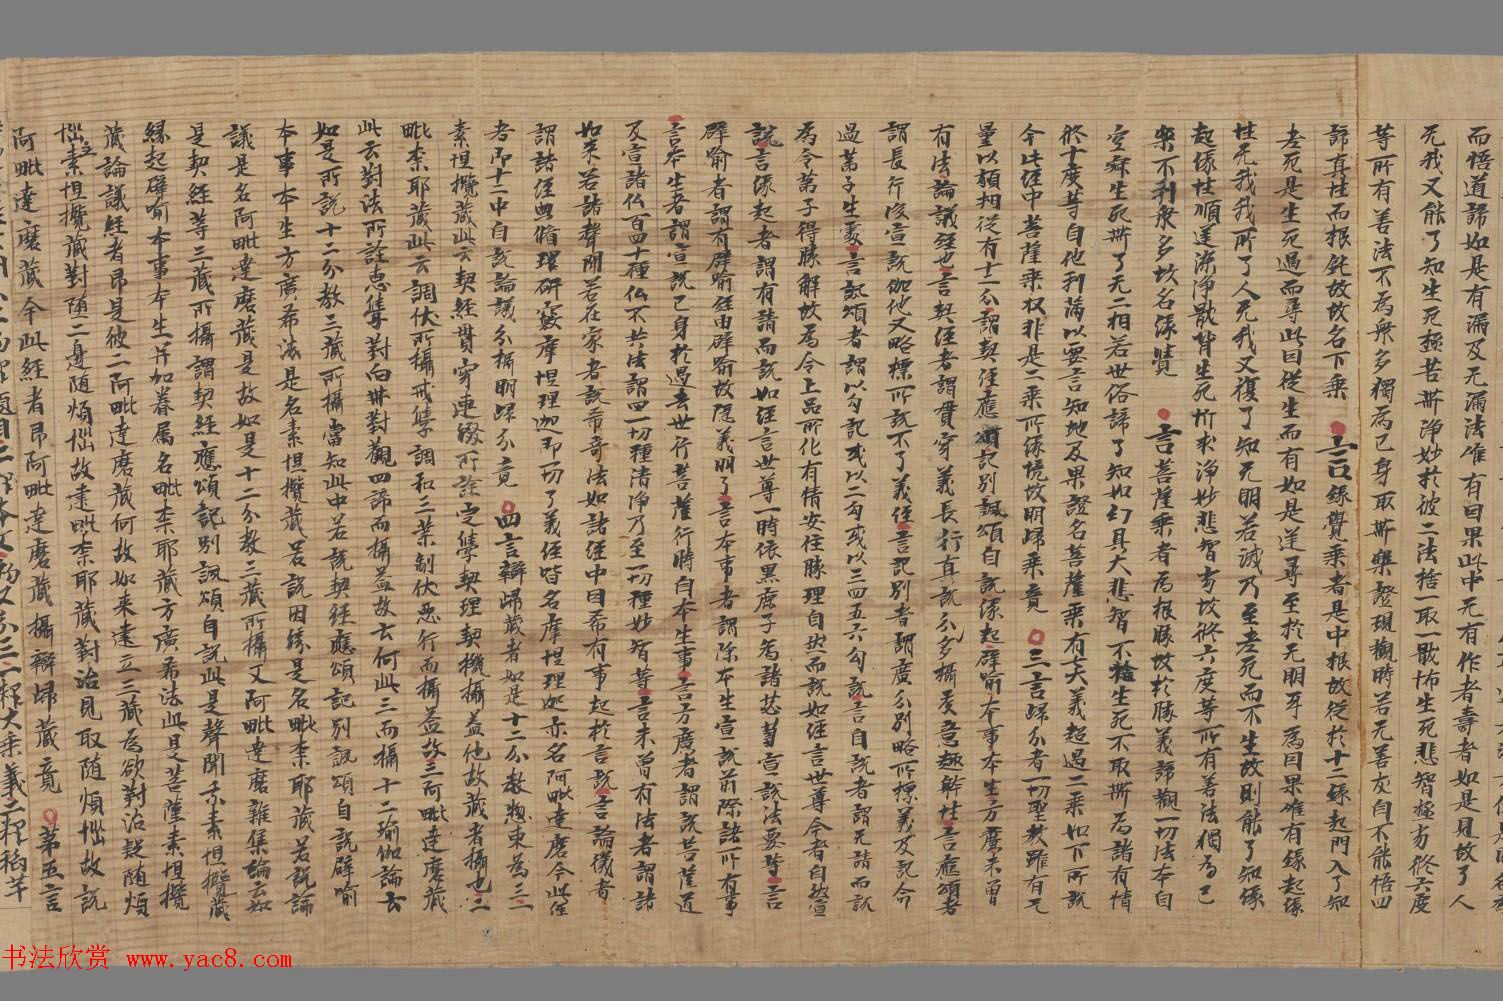 而悟道諦如是有漏及无漏法唯有因果此中无有作者壽者如是見故了人
无我又能了知生死極苦斯淨妙於彼二法捨一取一猒怖生死悲智極劣修六度
等所有善法不為衆多獨為己身取斯樂證現觀時若无善友自不能悟四
諦真性而根鈍故故名下乘 言緣覺乘者是中根故從於十二緣起門入了知
老死是生死過而尋此因從生而有如是逆尋至於无明耳為因果唯有緣起緣
性无我我所了人无我又復了知无明若滅乃至老死而不生故則能了知緣
起緣性順逆染淨猒背生死忻求淨妙悲智劣故修六度等所有善法獨為己
樂不利衆多故名緣覺 言菩薩乘者為根勝故於勝義諦觀一切法本自
空寂生死斯了无二相若世俗諦了知如幻具大悲智不捨生死不取斯為諸有情
修十度等自他利滿以要言知地及果證名菩薩乘有七大義超過二乘如下所說
今此經中菩薩乘收非是二乘所緣境故明歸乘竟 三言歸分者一切聖教雖有无
量以類相從有十二分謂契經應頌記別諷頌自說緣起譬喻本事本生方廣未曾
有法論議經也言契經者謂貫穿義長行直說分多攝受意趣解性言應頌者
謂長行後宣說伽他又略標所說不了義經言記別者謂廣分別略所標義及記命
過弟子生處言諷頌者謂以句記或以二句或以三四五六句說言自說者謂无請而說
為令弟子得勝解故為令上品所化有情安住勝理自然而說如經言世尊今者自然宣
說言緣起者謂有請而說如經言世尊一時依黑鹿子為諸苾芻宣說法要等言
譬喻者謂有譬喻經由譬喻故隱義明了言本事者謂除本生宣說前際諸所有事
言本生者謂宣說己身於過去世行菩薩行時自本生事言方廣者謂說菩薩道
及宣諸仏百四十種仏不共法謂四一切種清淨乃至一切種妙智等言未曾有法者謂諸
如來若諸聲聞若在家者說希奇法如諸經中因希有事起於言說言論議者
謂諸經典循環研覈摩怛理迦即一切了義經皆名摩怛理迦亦名阿毗達磨今此經
者即十二中自說論議分攝明歸分竟 四言辯歸藏者如是十二分教惣束為三一
素怛攬藏此云契經貫穿連綴所詮定學契理契機攝益他故藏者攝也二
毗柰耶藏此云調伏所攝戒學調和三業制伏惡行而攝益故三阿毗達磨藏
此云對法所詮惠學對向對觀四諦而攝益故云何此三而攝十二瑜伽論云
如是所說十二分教三藏所攝當知此中若說契經應頌記別諷頌自說譬喻
本事本生方廣希法是名素怛攬藏若說因緣是名毗柰耶藏若說論
議是名阿毗達磨藏是故如是十二分教三藏所攝又阿毗達磨雜集論云如
是契經等三藏所攝謂契經應頌記別諷頌自說此是聲聞素怛攬藏
緣起譬喻本事本生并加眷屬名毗柰耶藏方廣希法此是菩薩素怛攬
藏論議經者即是彼二阿毗達磨藏何故如來建立三藏為欲對治疑隨煩
惱立素怛攬藏對隨二邊隨煩惱故建毗柰耶藏對治見取隨煩惱故說
阿毗達磨藏今此經者即阿毗達磨藏攝辯歸藏竟 第五言
书法欣赏 www.yac8.com